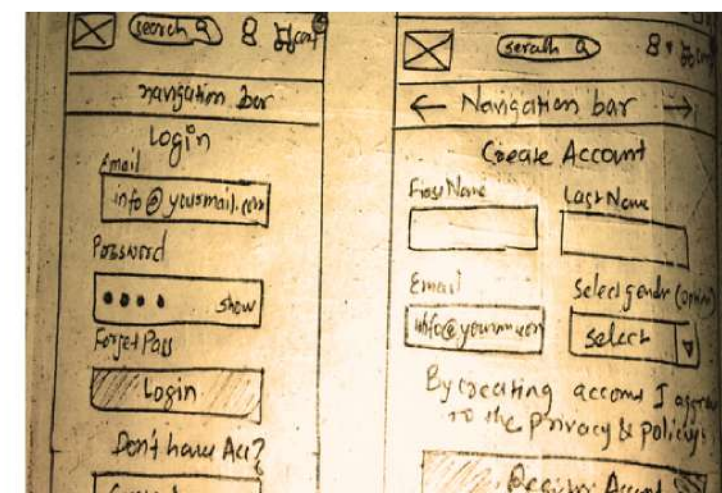 search
cart
navigation bar
Login
Email
info@yourmail.com
Password
show
Forget Pass
Login
Don't have Acc?
serath
← Navigation bar →
Create Account
First Name Last Name
Email Select gender
select
By creating account I agree
to the privacy & policy
Register Account